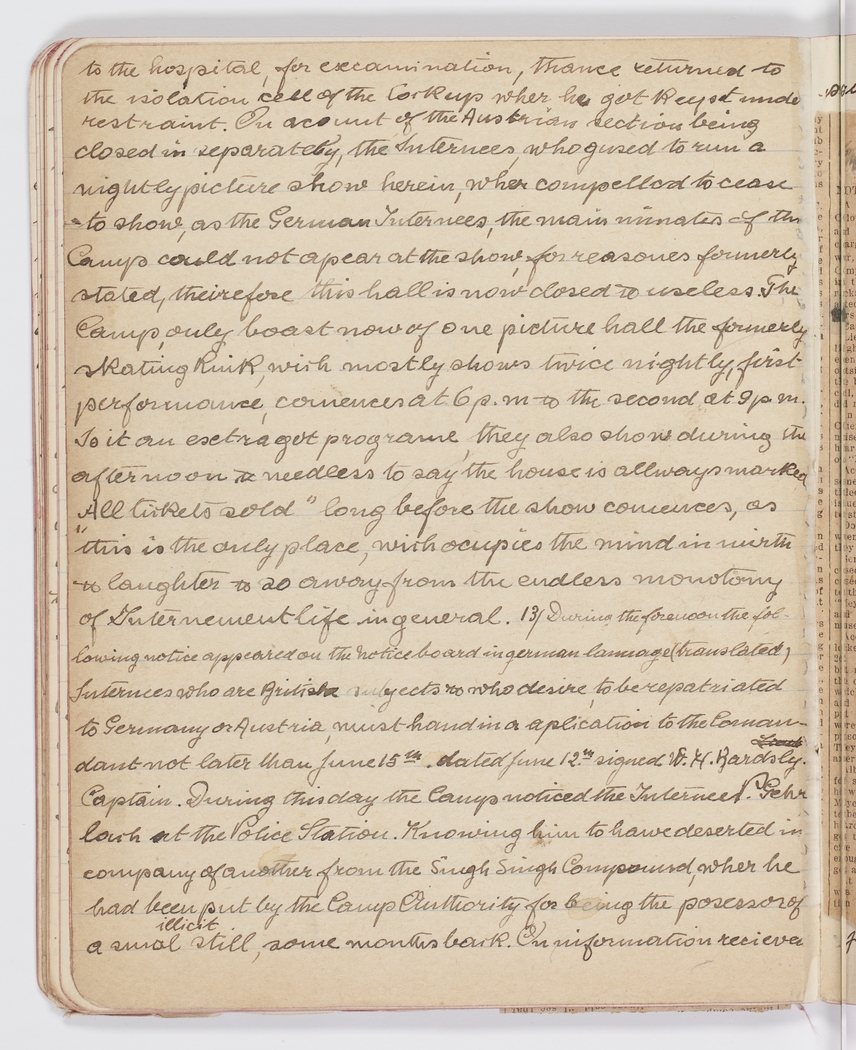 to the hospital, for excamination, thance returned to
the isolation cell of the Lockup wher he got Keypt unde
restraint. On acount of the Austrian section being
closed in separately, the Internees, who gused to run a
nightly picture show herein, wher compelled to cease
to show, as the German Internees, the main innates of the
Camp could not apear at the show, for reasones formerly
stated, theirefore this hall is now closed & useless. The
Camp, only boast now of one picture hall the formerly
skating Rink, wich mostly shows twice nightly, first
performance, comences at 6 p.m & the second at 9 p.m.
Is it an extra got programe, they also show during the
afternoon & needless to say the house is allways marked
"All tickets sold" long before the show comences, as
this is the only place, wich ocupies the mind in mirth
& laughter & so away from the endless monotomy
of Internement life in general. 13/ During the forenoon the fol-
lowing notice appeared on the Notice board in german lannage (translated)
Internees who are British subjects & who desire, to be repatriated
to Germany or Austria, must hand in a aplication to the Coman-
dant not later than June 15th. dated June 12th signed W. H. Bardsly.
Captain. During this day the Camp noticed the Internee P. Gehr
lach at the Police Station. Knowing him to hawe deserted in
company of another from the Singh Singh Compound, wher he
had been put by the Camp Authority for being the posessor of
illicit
a smal still, some months back. On information recieved